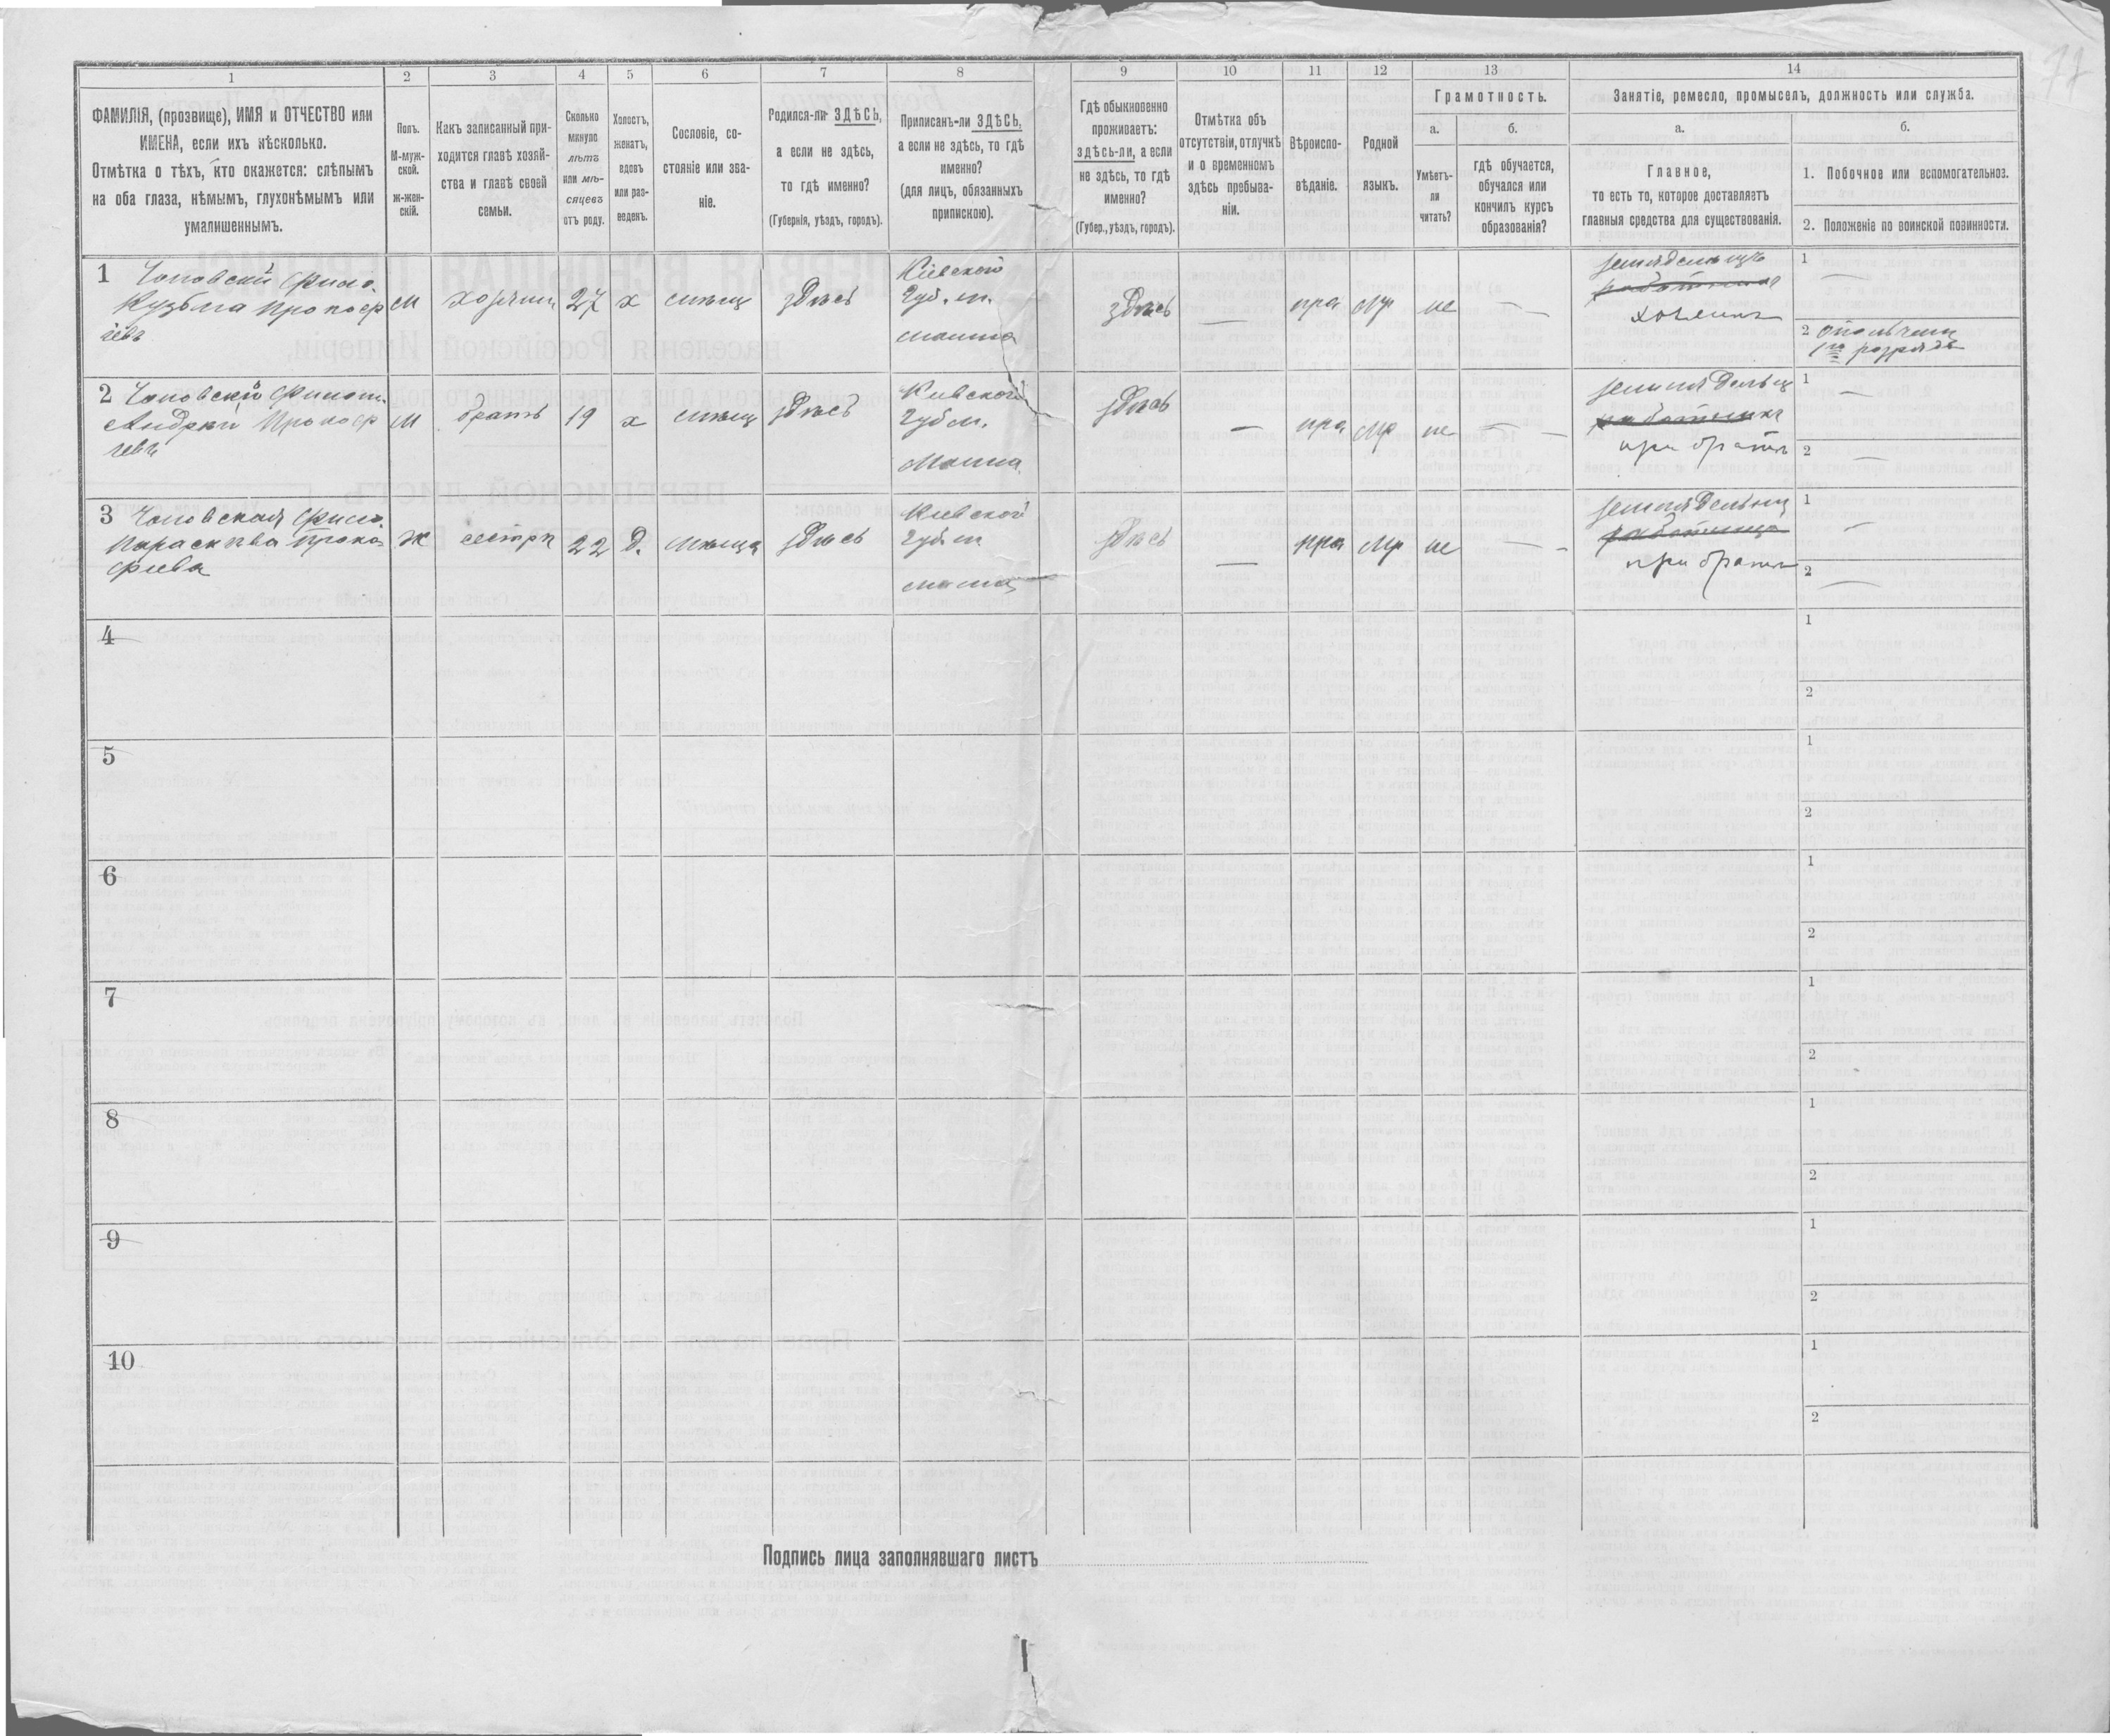 77
1 2 3 4 5 6 7 8 9 10 11 12 13 14
ФАМИЛІЯ, (прозвище), ИМЯ и ОТЧЕСТВО или
ИМЕНА, если ихъ нѣсколько.
Отмѣтка о тѣхъ, кто окажется: слѣпымъ
на оба глаза, нѣмымъ, глухонѣмымъ или
умалишеннымъ.
Полъ.
М-муж-
ской.
ж-жен-
скій.
Какъ записанный при-
ходится главѣ хозяй-
ства и главѣ своей
семьи.
Сколько
минуло
лѣтъ
или мѣ-
сяцевъ
отъ роду.
Холостъ,
женатъ,
вдовъ
или раз-
веденъ.
Сословіе, со-
стояніе или зва-
ніе.
Родился-ли ЗДѢСЬ,
а если не здѣсь,
то гдѣ именно?
(Губернія, уѣздъ, городъ).
Приписанъ-ли ЗДѢСЬ,
а если не здѣсь, то гдѣ
именно?
(для лицъ, обязанныхъ
припискою).
Гдѣ обыкновенно
проживаетъ:
здѣсь-ли, а если
не здѣсь, то гдѣ
именно?
(Губер., уѣздъ, городъ).
Отмѣтка объ
отсутствіи, отлучкѣ
и о временномъ
здѣсь пребыва-
ніи.
Вѣроиспо-
вѣданіе.
Родной
языкъ.
Грамотность.
а.
Умѣетъ-
ли
читать?
б.
гдѣ обучается,
обучался или
кончилъ курсъ
образованія?
Занятіе, ремесло, промыселъ, должность или служба.
а.
Главное,
то есть то, которое доставляетъ
главныя средства для существованія.
б.
1. Побочное или вспомогательное.
2. Положеніе по воинской повинности.
1
Кузьма Прокоф
іевъ
м
хозяин
27
х
мѣщ
здѣсь
Кіевской
Губ. м.
здѣсь
—
пра
мр
не
—
хозяинъ
1 —
2 ополчен
разряда
2
Андрей Прокоф
іевъ
м
братъ
19
х
мѣщ
здѣсь
Киевской
Губ м.
здѣсь
—
пра
мр
не
— —
при братѣ
1 —
2 —
3
Параскева Проко
фиева
ж
сестра
22
д.
мѣща
здѣсь
Киевской
Губ. м
здѣсь
—
пра
мр
не
— —
при братѣ
1 —
2 —
4
1
2
5
1
2
6
1
2
7
1
2
8
1
2
9
1
2
10
1
2
Подпись лица заполнявшаго листъ